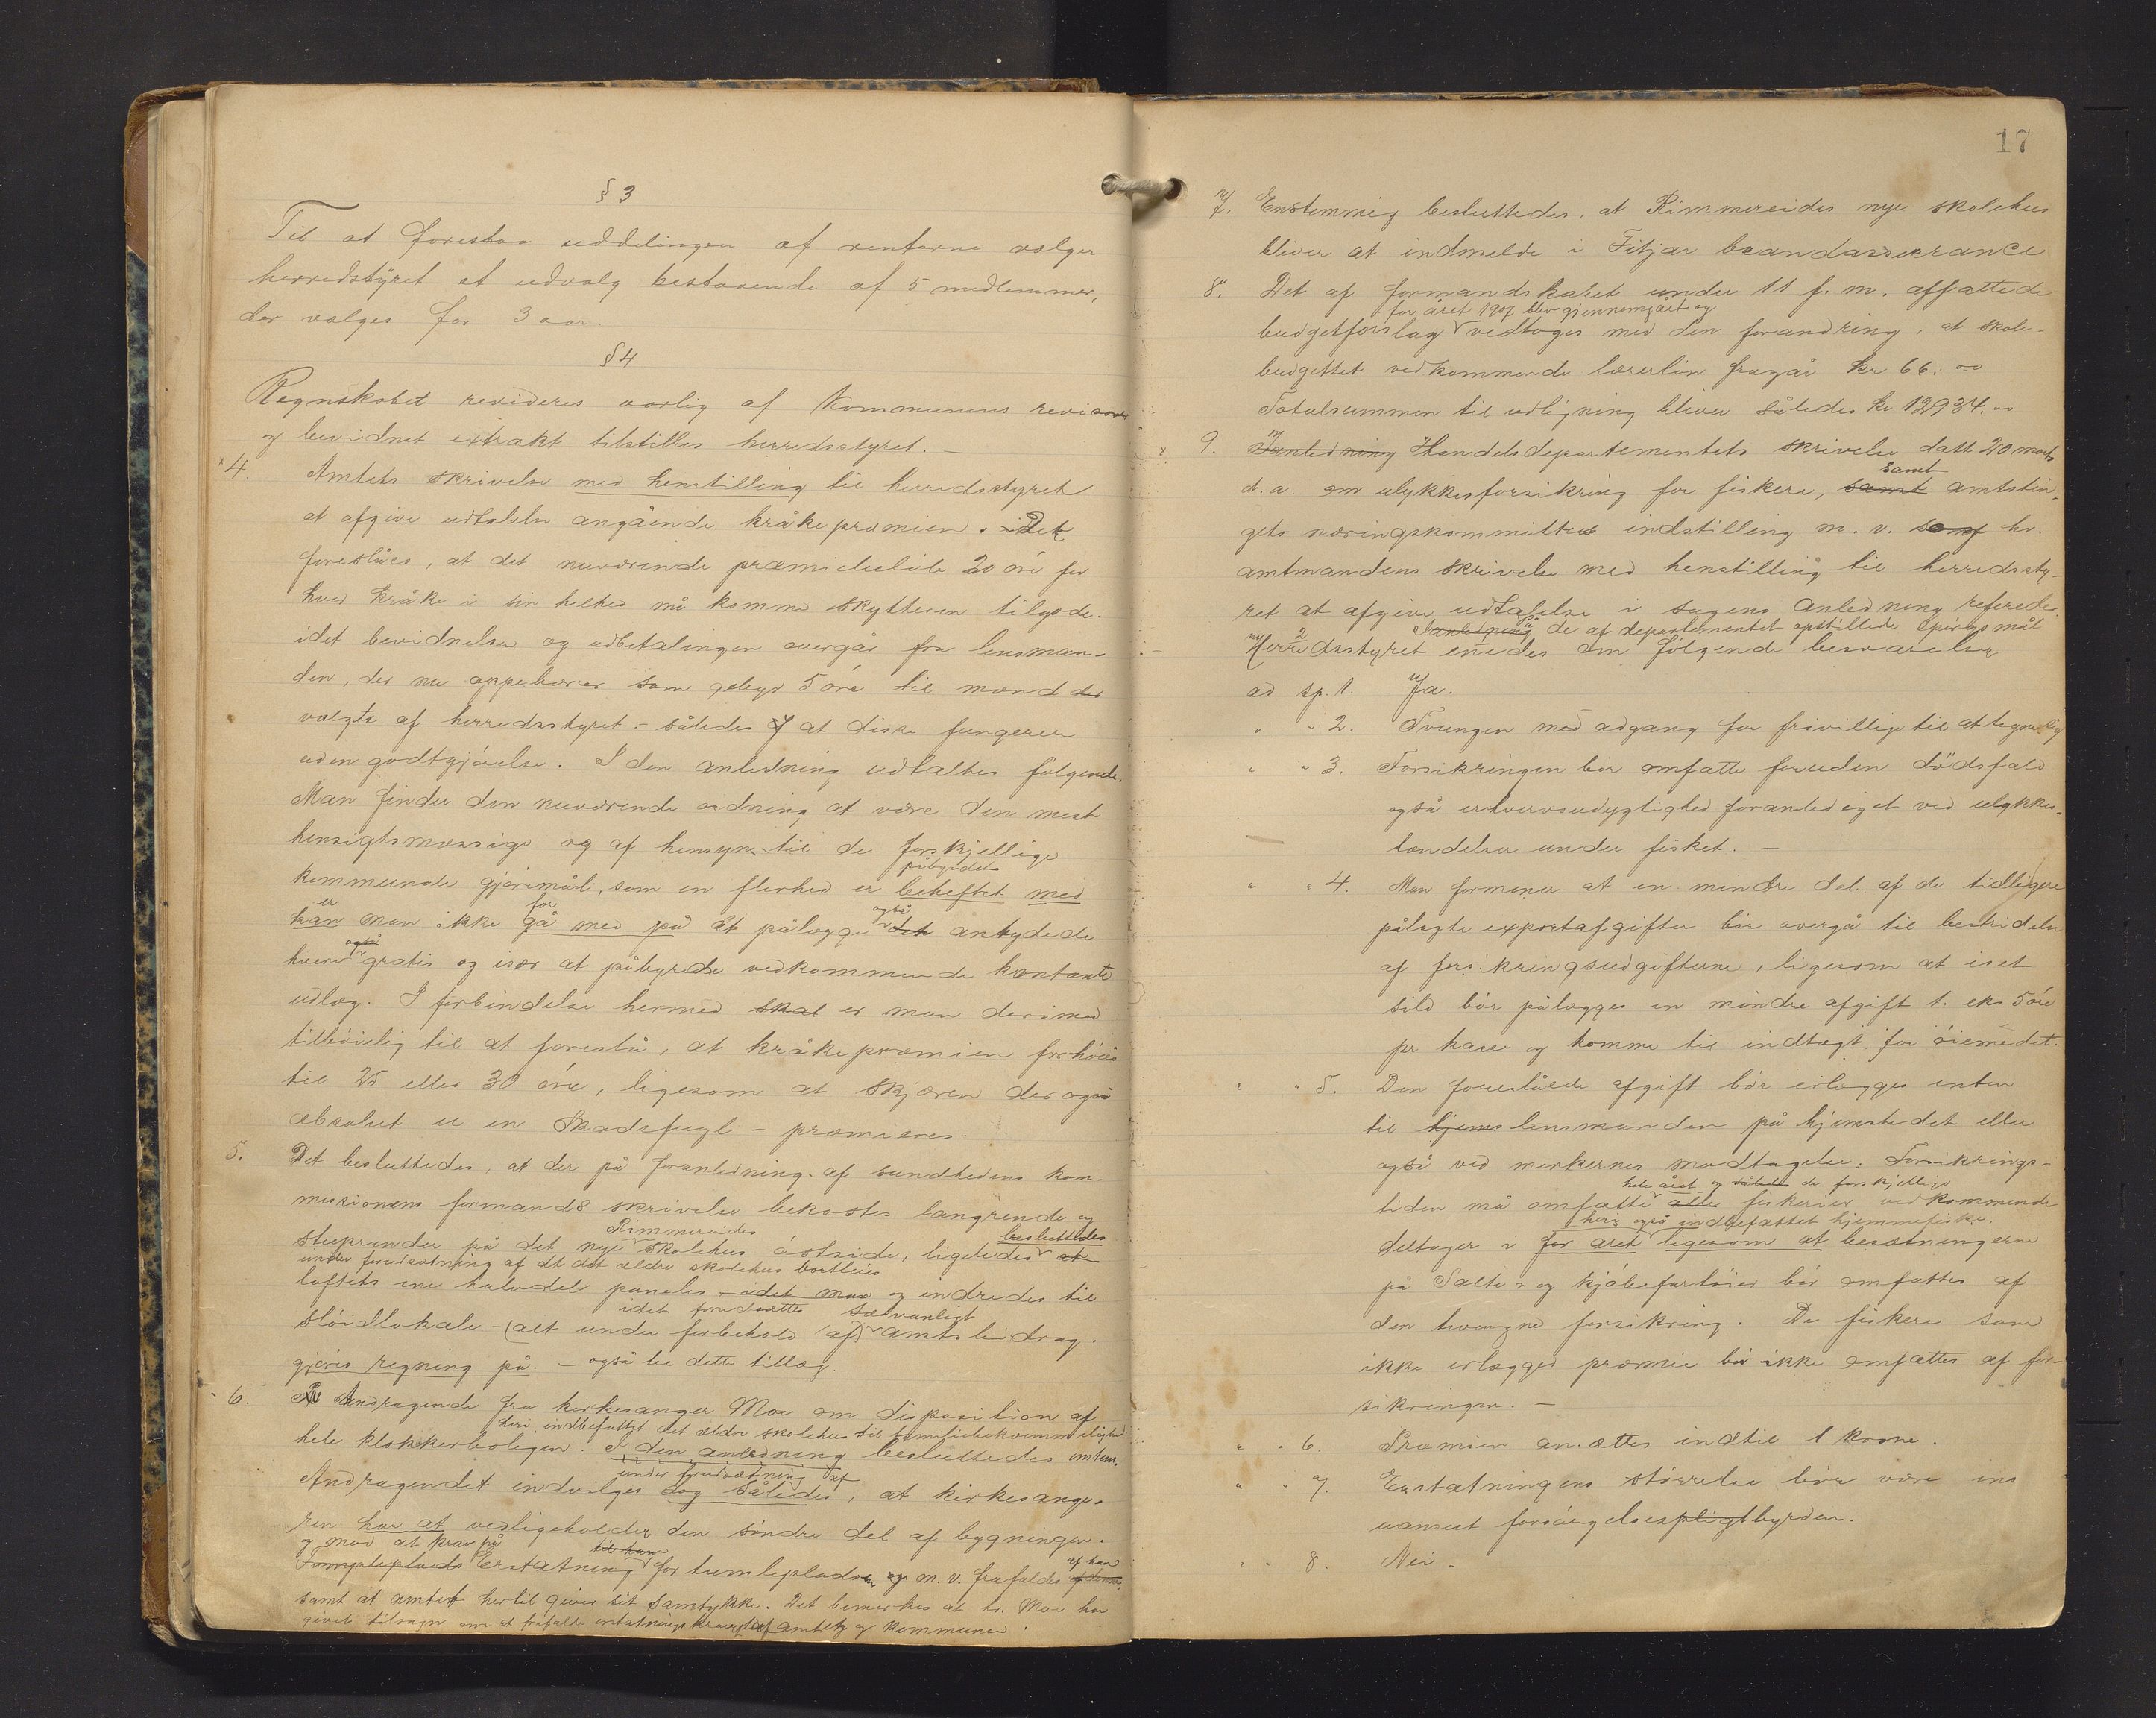 § 3
Til at forestaa uddelingen af renterne vælger
herredstyret et udvalg bestaaende af 5 medlemmer,
der vælges for 3 aar.
§ 4
Regnskabet revideres aarlig af kommunens revisorer
og bevidnet extrakt tilstilles herredsstyret. –
4. Amtets skrivelse med henstilling til herredsstyret
at afgive udtalelse angående kråkepræmien. Det
foreslåes, at det nuværende præmiebeløb 20 øre for
hver kråke i sin helhed må komme skytteren tilgode.
idet bevidnelse og udbetalingen overgår fra lensman-
den, der nu oppebærer som gebyr 5 øre til mænd der
valgte af herredsstyret – således at disse fungerer
uden godtgjørelse. I den anledning udtaltes følgende.
Man finder den nuværende ordning at være den mest
hensigtsmæssige og af hensyn til de forskjellige
påbyrdet
kommunale gjøremål, som en flerhed er beheftet med
er for også
kan man ikke gå med på at pålægge det antydede
også
hverv gratis og især at påbyrde vedkommende kontante
udlæg. I forbindelse hermed skal er man derimod
tilbøielig til at foreslå, at kråkepræmien forhøies
til 25 eller 30 øre, ligesom at skjæren der også
absolut er en Skadefugl – præmieres.
5. Det besluttedes, at der på foranledning af sundhedens kom-
missionens formands skrivelse bekostes langrende og
Rimmereides besluttedes
stuprender på det nye skolehus østside, ligeledes at
under forudsætning af at det ældre skolehus bortleies
loftets ene halvdel paneles idet man og indredes til
idet forudsættes sædvanligt
sløidlokale – (alt under forbehold af) amtsbidrag.
gjøres regning på. – også til dette tillæg.
6. Andragende fra kirkesanger Moe om disposition af
heri indbefattet det ældre skolehus til familiebekvemmelighed
hele klokkerboligen. I den anledning besluttedes enstem.
under forudsætning af
Andragendet indvilges dog således, at kirkesange-
ren har at vedligeholder den søndre del af bygningen.
og mod at krav på til ham
Tumleplads Erstatning for tumlepladsen m. v. frafaldes af ham
samt at amtet hertil giver sit samtykke. Det bemerkes at hr. Moe har
givet tilsagn om at frafalde erstatningskrav amtet og kommunen.
17
7. Enstemmig besluttedes, at Rimmereides nye skolehus
bliver at indmelde i Fitjar brandassurance
8. Det af formandskabet under 11 f. m. affattede
for året 1907 blev gjennemgået og
budgetforslag vedtoges med den forandring, at skole-
budgettet vedkommende lærerløn fragår kr 66.00
Totalsummen til udligning bliver således kr 12934.00
9. I anledning Handelsdepartementets skrivelse datt 20 marts
samt
d. a. om ulykkesforsikring for fiskere, samt amtstin-
gets næringskommittes indstilling m. v. samt hr.
amtmandens skrivelse med henstilling til herredssty-
ret at afgive udtalelse i sagens anledning refereredes.
I anledning på de af departementet opstillede spørgsmål
Herredsstyret enedes om følgende besvarelser
ad sp. 1. Ja.
" " 2. Tvungen med adgang for frivillige til at tegne sig
" " 3. Forsikringen bør omfatte foruden dødsfald
også erhvervsudygtighed foranlediget ved ulykkes-
hændelse under fisket. –
" " 4. Man formener at en mindre del af de tidligere
pålagte exportafgifter bør overgå til bestridelse
af forsikringsudgifterne, ligesom at iset
sild bør pålægges en mindre afgift t. eks 5 øre
pr kasse og komme til indtægt for øiemedet.
" " 5. Den foreslåede afgift bør erlægges enten
til hjems lensmanden på hjemstedet eller
også ved merkernes modtagelse. Forsikrings-
hele året og således de forskjellige
tiden må omfatte alle fiskerier vedkommende
heri også indbefattet hjemmefiske.
deltager i for året ligesom at besætningerne
på Salte- og kjøbefartøier bør omfattes af
den tvungne forsikring. De fiskere som
ikke erlægger præmie bør ikke omfattes af for-
sikringen. –
" " 6. Præmien ansættes indtil 1 krone.
" " 7. Erstatningens størrelse bør være ens
uanseet forsørgelsespligtbyrden.
" " 8. Nei –